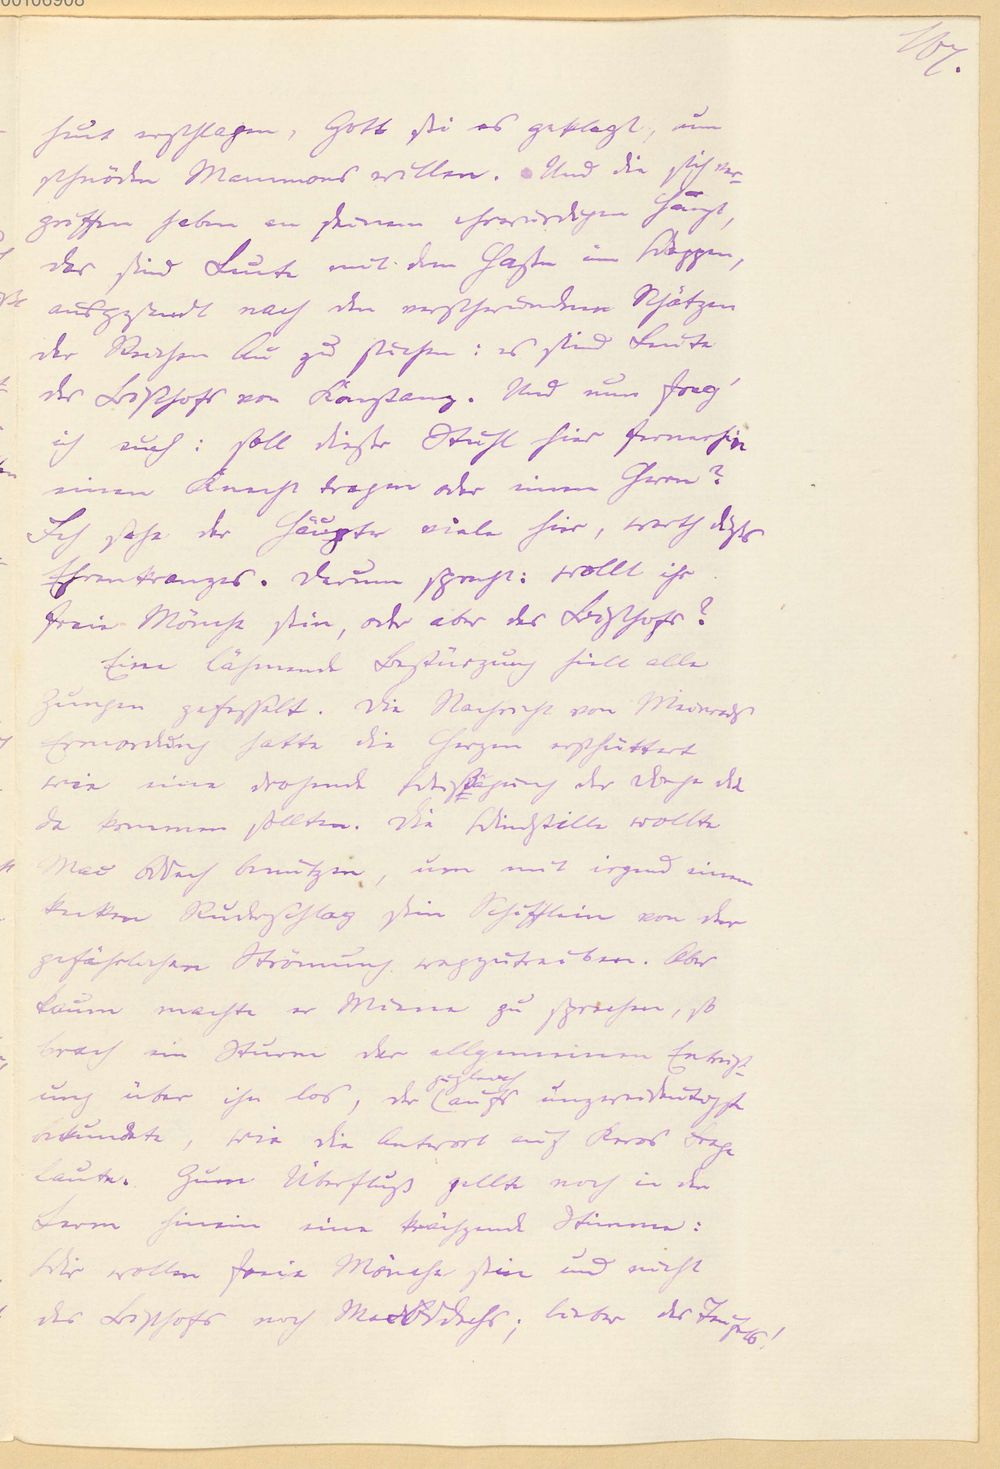 00106908
167.
heut erschlagen, Gott sei es geklagt, um
schnöden Mammons willen. Und die sich ver-
griffen haben an seinem ehrwürdigen Haupt,
das sind Leute mit dem Hasen im Wappen,
ausgesandt nach den verschwundenen Schätzen
der Reichen Au zu suchen: es sind Leute
des Bischofs von Konstanz. Und nun frag'
ich euch: soll dieser Stuhl hier fernerhin
einen Knecht tragen oder einen Herrn?
Ich sehe der Häupter viele hier, werth dieses
Ehrenkranzes. Darum sprecht: wollt ihr
freie Mönche sein, oder aber des Bischofs?
Eine lähmende Bestürzung hielt alle
Zungen gefesselt. Die Nachricht von Meinrads
Ermordung hatte die Herzen erschüttert
wie eine drohende Weissagung der Dinge die
da kommen sollten. Die Windstille wollte
benutzen, um mit irgend einem
kecken Ruderschlag sein Schifflein von der
gefährlichen Strömung wegzutreiben. Aber
kaum machte er Miene zu sprechen, so
brach ein Sturm der allgemeinen Entrüst-
ung über ihn los, der zugleich aufs unzweideutigste
bekundete, wie die Antwort auf Keros Frage
laute. Zum Überfluß gellte noch in den
Lärm hinein eine krächzende Stimme:
Wir wollen freie Mönche sein und nicht
des Bischofs noch lieber des Teufels!